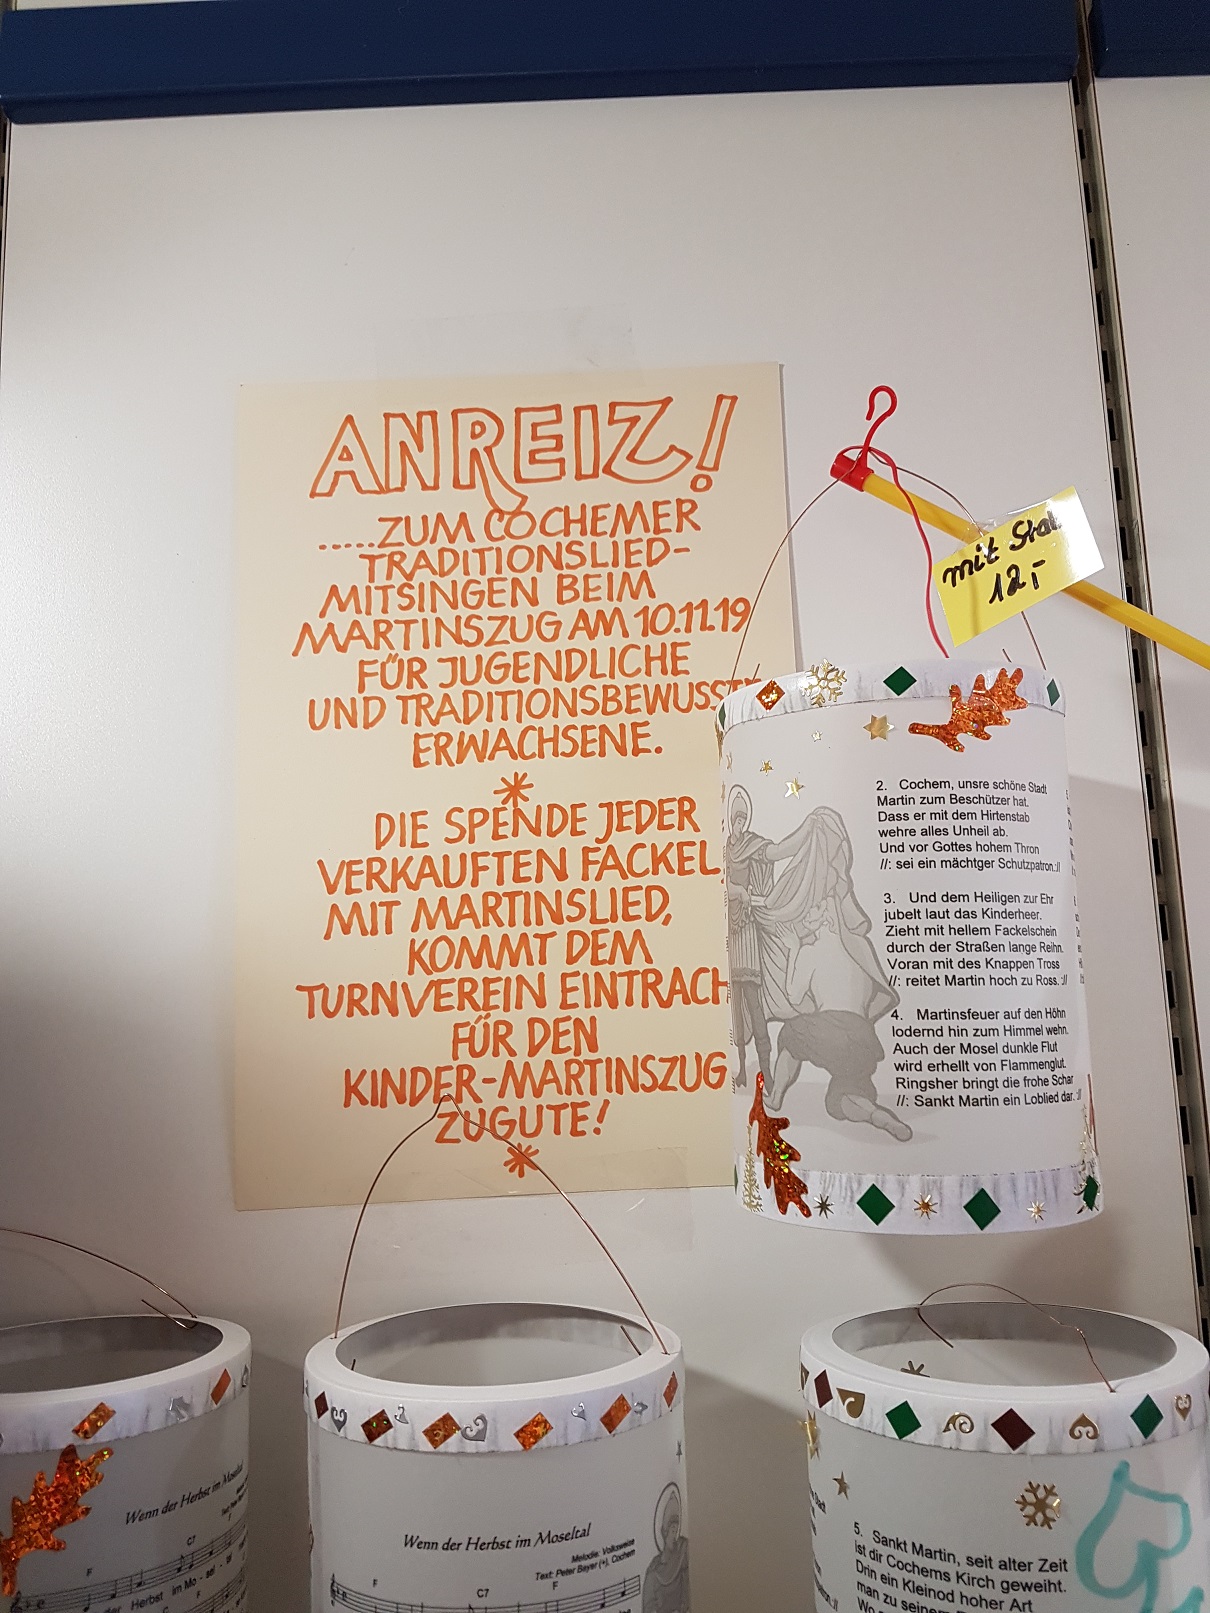 ANREIZ!
.....ZUM COCHEMER
TRADITIONSLIED-
MITSINGEN BEIM
MARTINSZUG AM 10.11.19
FÜR JUGENDLICHE
UND TRADITIONSBEWUSSTE
ERWACHSENE.
*
DIE SPENDE JEDER
VERKAUFTEN FACKEL,
MIT MARTINSLIED,
KOMMT DEM
TURNVEREIN EINTRACH
FÜR DEN
KINDER-MARTINSZUG
ZUGUTE!
*
mit Stab
12,-
2. Cochem, unsre schöne Stadt
Martin zum Beschützer hat.
Dass er mit dem Hirtenstab
wehre alles Unheil ab.
Und vor Gottes hohem Thron
//: sei ein mächtger Schutzpatron.://
3. Und dem Heiligen zur Ehr
jubelt laut das Kinderheer.
Zieht mit hellem Fackelschein
durch der Straßen lange Reihn.
Voran mit des Knappen Tross
//: reitet Martin hoch zu Ross.://
4. Martinsfeuer auf den Höhn
lodernd hin zum Himmel wehn.
Auch der Mosel dunkle Flut
wird erhellt von Flammenglut.
Ringsher bringt die frohe Schar
//: Sankt Martin ein Loblied dar.://
Wenn der Herbst im Moseltal
F C7 F
der Herbst im Mo - sel - tal
Wenn der Herbst im Moseltal
Melodie: Volksweise
Text: Peter Bayer (+), Cochem
F C7 F
5. Sankt Martin, seit alter Zeit
ist dir Cochems Kirch geweiht.
Drin ein Kleinod hoher Art
man zu seinem